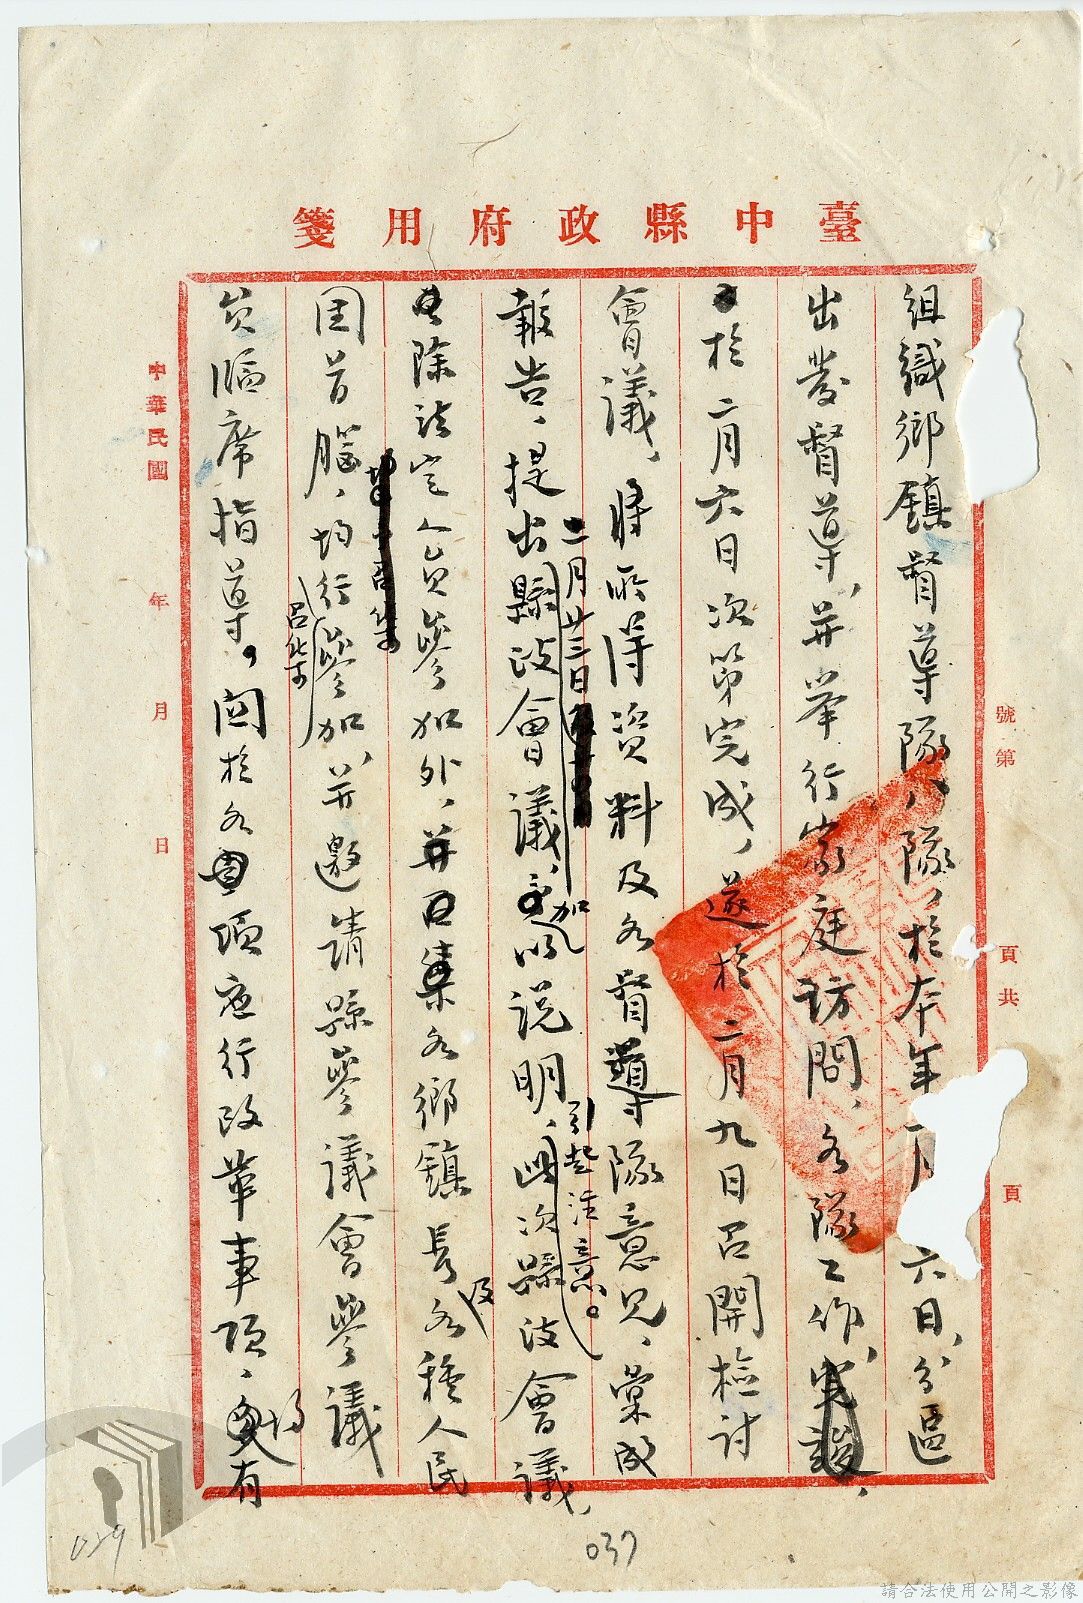 臺中縣政府用箋
組織鄉鎮督導隊八隊，於本年 月 六日，分區
出發督導，并举行家庭訪問，各隊工作，
於二月六日次第完成，遂於二月九日召開檢討
會議，將所得資料及各督導隊意見，彙成
報告，提出二月廿三日縣政會議，加以說明，引起注意。此次縣政會議，
除法定人員參加外，并召集各鄉鎮長及各種人民
團首腦，均行參加，并邀請縣參議會參議
員臨席指導。關於各項應行改革事項，均有
中華民國 年 月 日
號第 頁共 頁
029
037
請合法使用公開之影像